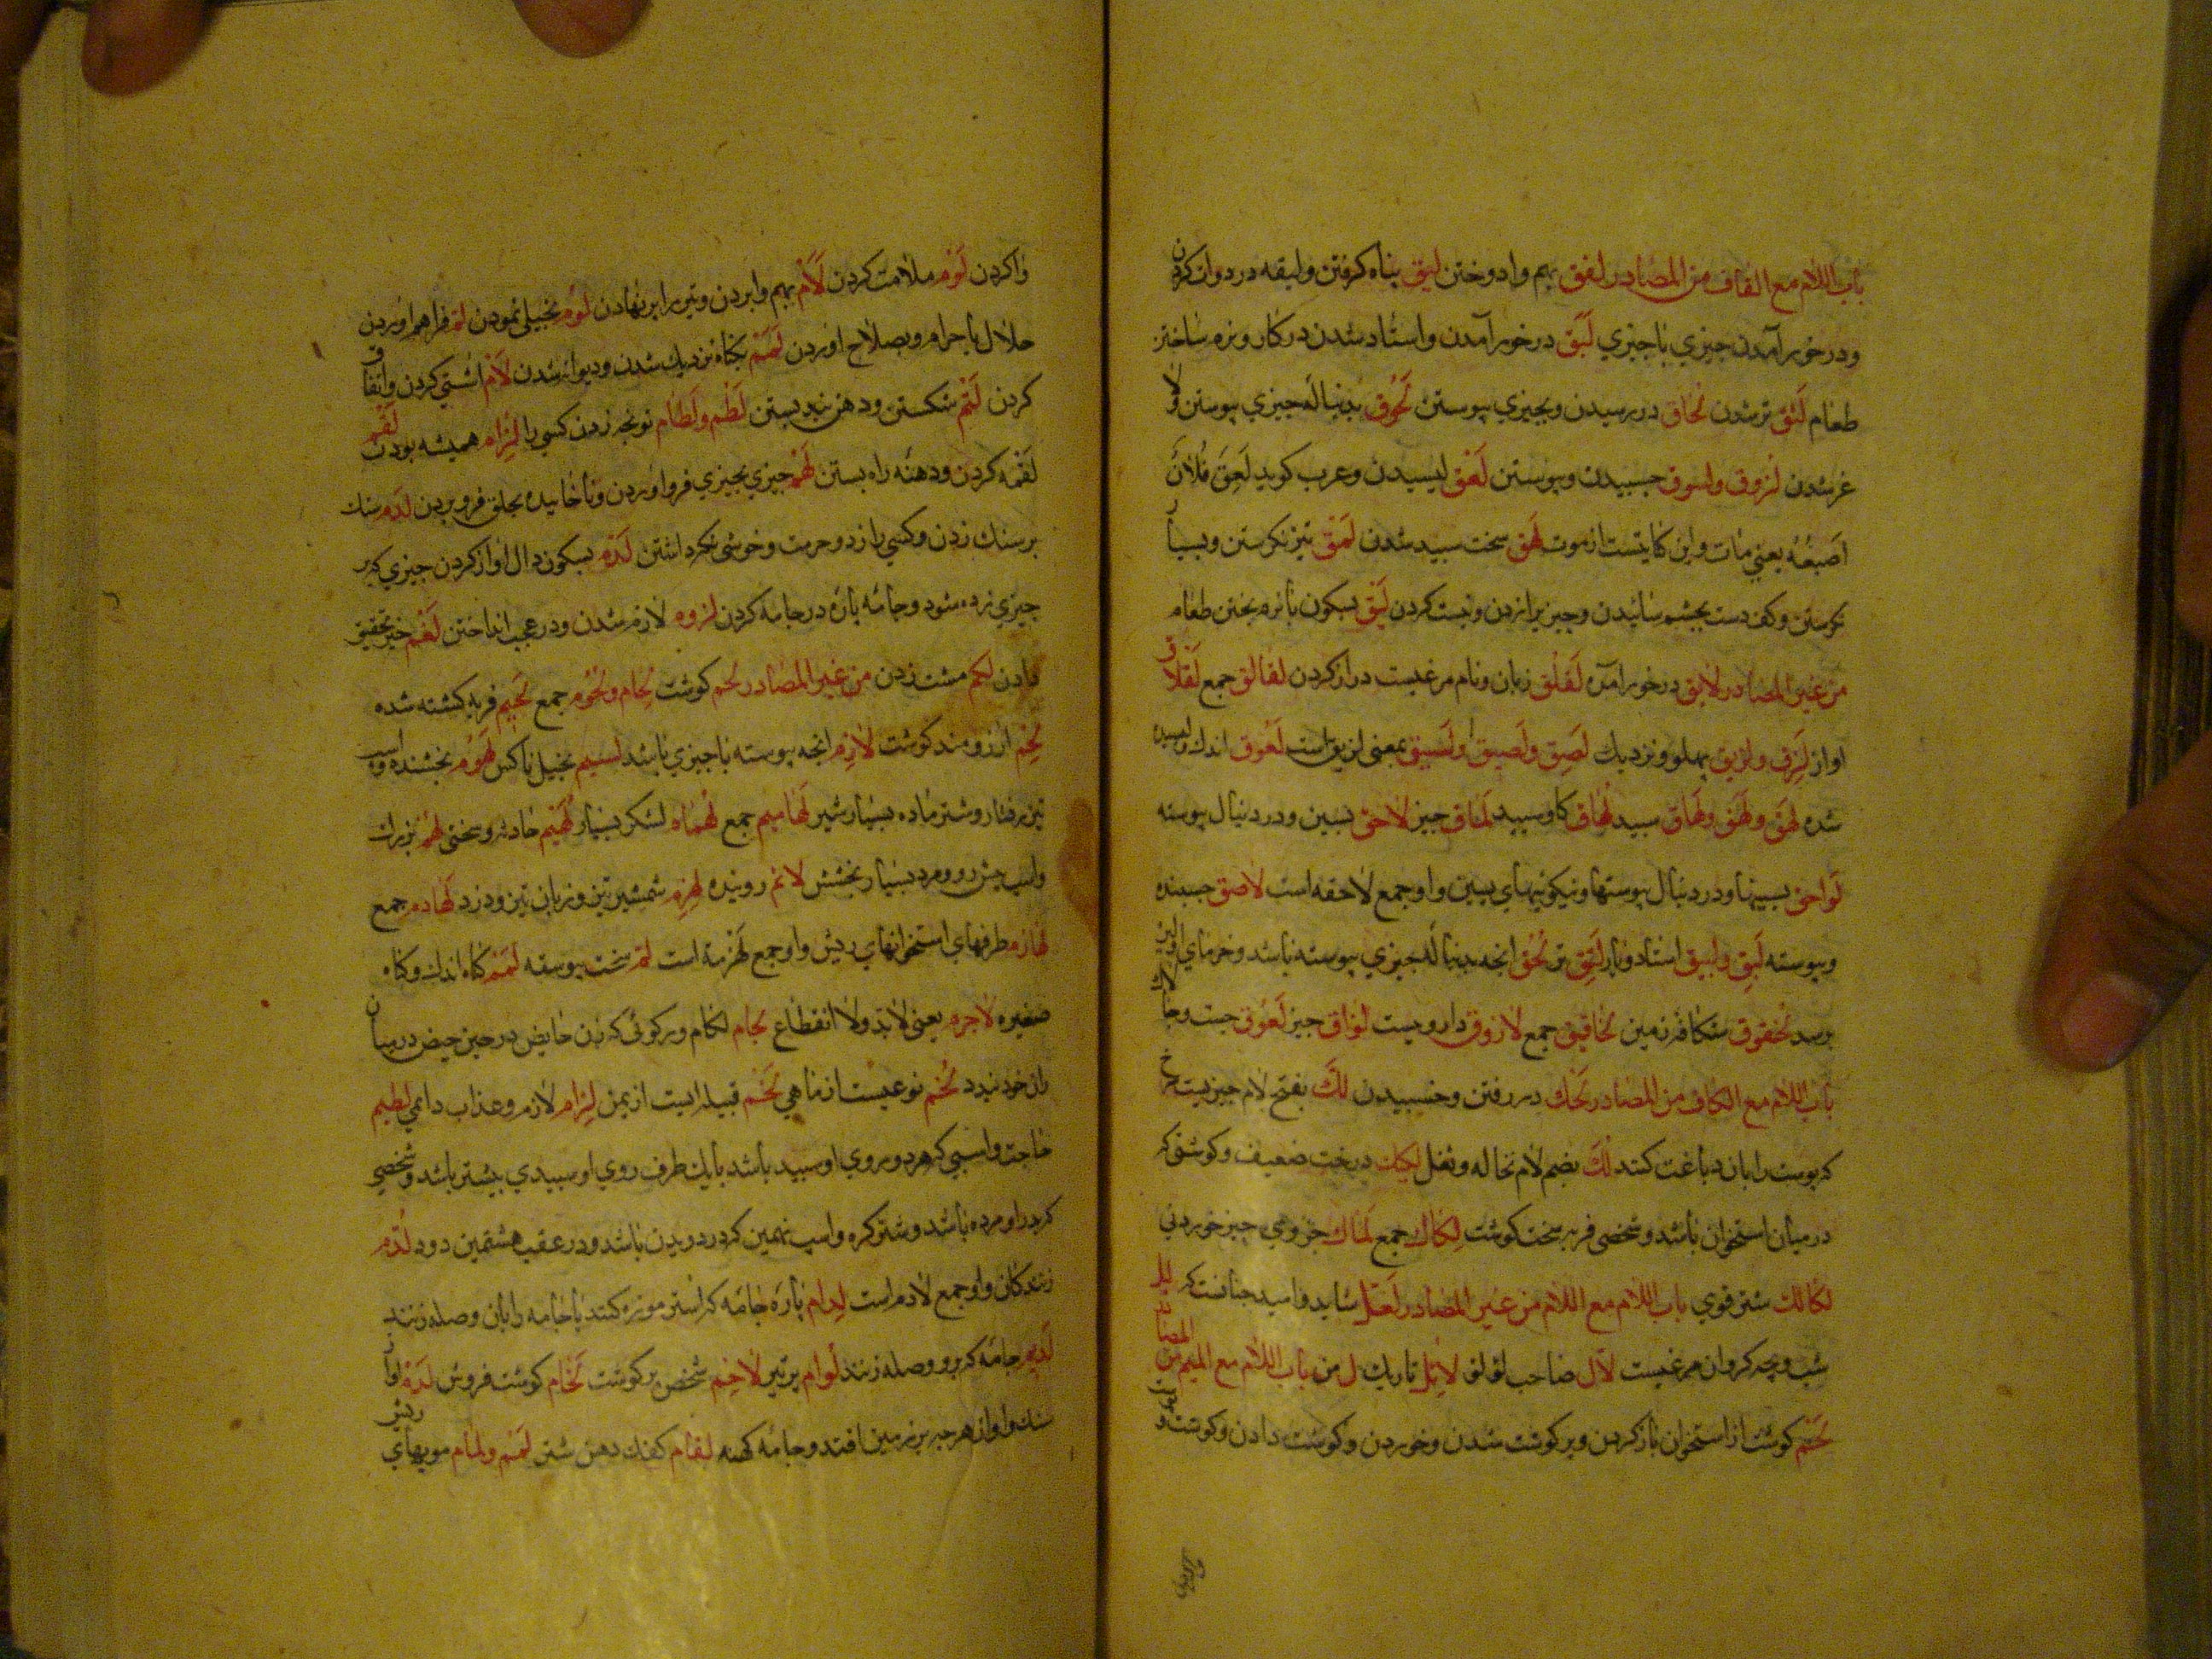 باب اللام مع القاف من المصادر لفق بهم وادوختن ليق پناه كرفتن وليقه در دوات كردن
ودرخور آمدن جيزي با جيزي لبق درخور آمدن واستاد شدن در كار ونرم ساختن
طعام لثق تر شدن لحاق در رسيدن وبجيزي پيوستن لحوق بدنباله جيزي پيوستن ولا
غر شدن لزوق ولسوق جسبيدن وپيوستن لعق ليسيدن وعرب كويد لعق فلان
اصبعه يعني مات واين كنايتست از موت لهق سخت سپيد شدن لمق تيز نكرستن وبسيار
نكرستن وكف دست بجشم سائيدن وجيز برازدن ونيست كردن لبق بسكون با نرم بختن طعام
من غير المصادر لايق درخور آمده لقلق زبان ونام مرغيست دراز كردن لقالق جمع لقلاق
اواز لزق ولزيق پهلو ونزديك لصق ولصيق ولسيق بمعني لزيق است لعوق اندك وليسيدن
شده لهق ولهق ولهاق سپيد لهاق كاو سپيد لماق جيز لاحق پسين ودر دنبال پيوسته
لواحق پسينها ودر دنبال پيوستها ونيكوئيهاي پسين واو جمع لاحقه است لاصق جسبنده
وپيوسته لبق ولبيق استاد لثق تر لحق انجه بدنباله جيزي پيوسته باشد وخرماي
برسد لخقوق شكاف زمين لخاقيق جمع لازوق داروييست لواق جيز لعوق
باب اللام مع الكاف من المصادر لحك در رفتن وجسبيدن لك بفتح لام جيزيست سرخ
كه پوست را بان دباغت كنند لك بضم لام نخاله وثفل لكك درخت ضعيف وكوشتي كه
در ميان استخوان باشد وشخصي فربه سخت كوشت لكاك جمع لماك جزوي جيز خوردني
لكالك شتر قوي باب اللام مع اللام من غير المصادر لعل شايد واميد جنانست كه ليل
شب وبچه كروان مرغيست لآل صاحب لؤلؤ لائل تاريك ل من باب اللام مع الميم من المصادر
لحم كوشت از استخوان باز كردن وپر كوشت شدن وخوردن وكوشت دادن وكوشت
واكردن لوم ملامت كردن لأم بهم وابردن وتير را پر نهادن لؤم بخيلي نمودن لم فراهم اوردن
حلال با حرام وبصلاح اوردن لمم بكناه نزديك شدن وديوانه شدن لأم اشتي كردن واتفاق
كردن لثم شكستن ودهن بند بستن لطم ولطام تونجه زدن كسي را لزام هميشه بودن لقم
لقمه كردن ودهنه راه بستن لهم جيزي بجيزي فرو اوردن وناخاييده بحلق فرو بردن لدم سنك
بر سنك زدن وكسي را زدن وحرمت وخوشي نكه داشتن لدم بسكون دال اواز كردن جيزي كه بر
جيزي زده شود وجامه پاره در جامه كردن لزوم لازم شدن ودر عجب انداختن لغم خبر تحقيق
دادن لكم مشت زدن من غير المصادر لحم كوشت لحام ولحوم جمع لحيم فربه كشته شده
لحم ارزومند كوشت لازم انجه پيوسته با جيزي باشد لئيم بخيل ناكس لهوم بخشنده واسب
تيز رفتار وشتر ماده بسيار شير لهاميم جمع لهمام لشكر بسيار لهيم حادثه وسختي لهم بزرك
واسب پيش رو ومرد بسيار بخشش لهذم شمشير تيز وزبان تيز ودزد لهاذم جمع
لهازم طرفهاي استخوانهاي ريش واو جمع لهزمة است لم سخت پيوسته لمم كناه اندك وكناه
صغيره لاجرم يعني لابد ولا انقطاع لجام لكام وركوئي كه زن حايض در حين حيض در ميان
ران خود بندد لخم نوعيست از ماهي لخم قبيله ايست از يمن لزام لازم وعذاب دايمي لطيم
حاجت واسبي كه هر دو روي او سپيد باشد يا يك طرف روي او سپيدي بيشتر باشد وشخصي
كه پدر او مرده باشد وشتر كره واسپ نهمين كه در دويدن باشد ودر عقب هشتمين دود لدم
زنندكان واو جمع لادم است لدام پاره جامه كه استر موزه كنند يا جامه را بان وصله زنند
لديم جامه كه برو وصله زنند لوام پر تير لاحم شخص پر كوشت لحام كوشت فروش لدم اواز
سنك واواز هر چه بر زمين افتد وجامه كهنه لغام كفك دهن شتر لمم ولمام مويهاي ريش